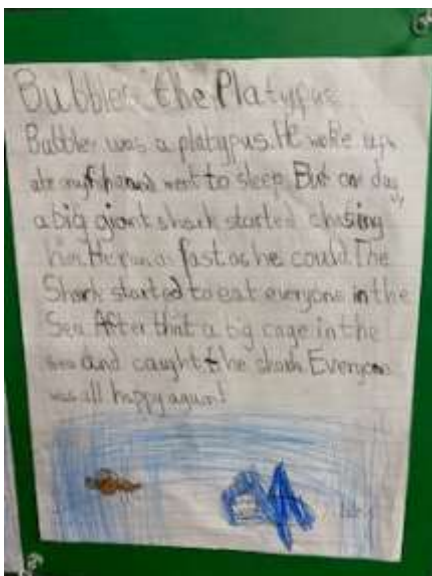 Bubbler the Platypus
Bubbler was a platypus. He woke up,
ate and went to sleep. But one day
a big giant shark started chasing
him. He ran as fast as he could. The
Shark started to eat everyone in the
Sea. After that a big cage in the
sea and caught the shark. Everyone
was all happy again!